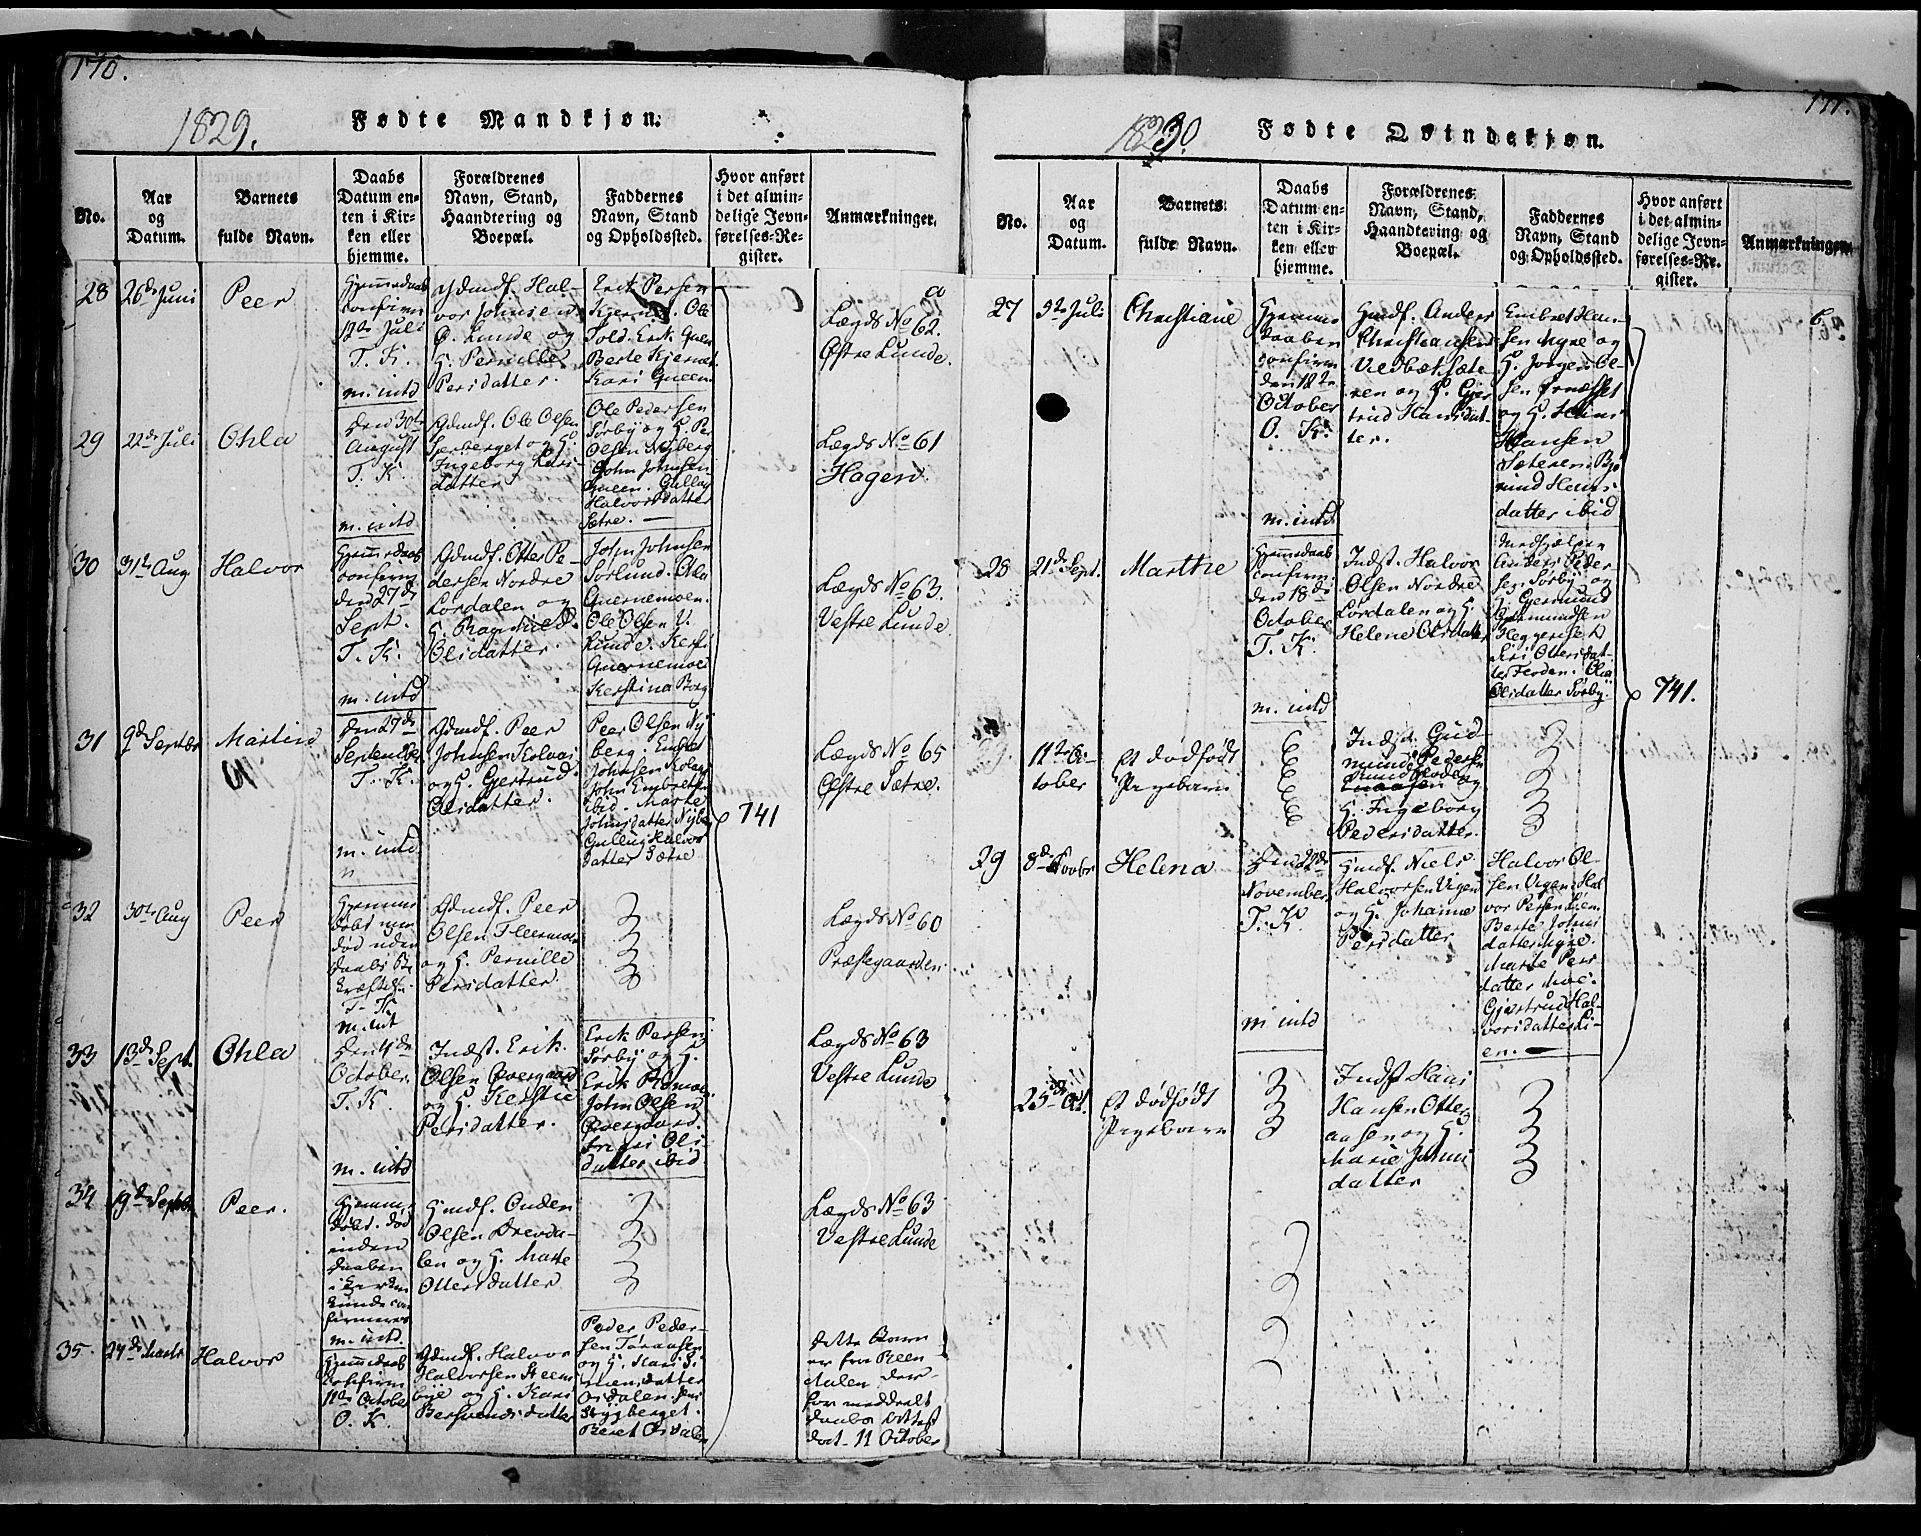 170.
1829.
Fødte Mandkjøn.
No.
Aar
og
Datum.
Barnets
fulde Navn.
Daabs
Datum en-
ten i Kir-
ken eller
hjemme.
Forældrenes
Navn, Stand,
Haandtering og
Boepæl.
Faddernes
Navn, Stand
og Opholdssted.
Hvor anført
i det almin-
delige Jevn-
førelses-Re-
gister.
Anmærkninger.
28
26de Juni
Peer
Hjemmedaab
confirm
12te Juli
T. K.
m. intd
Gdmdf. Hal-
vor Johnsen
Ø. Lunde og
H. Pernille
Persdatter.
Erik Persen
Kjernæt. Ole
Sold. Erik Queen
Berte Kjernæt
Kari Queen
Lægds No 62.
Østre Lunde.
29
22de Juli
Ohla
Den 30te
August
T. K.
m. intd
Gdmdf. Ole Olsen
Sørberget og H.
Ingeborg Lars-
datter
Ole Pedersen
Sørby og H. Per
Olsen Nyberg
John Johnsen
Queen. Gullaug
Halvorsdatter
Sætre.
Lægds No 61
Hagen.
30
31te Aug
Halvor
Hjemmedaab
confirm
den 27de
Sept.
T. K.
m. intd
Gdmdf. Otter Pe-
dersen Nordre
Lørdalen og
H. Ragnhild
Olsdatter.
John Johnsen
Sørlund. Ohla
Quernemoen.
Ole Olsen V.
Lunde. Kersti
Quernemoen
Kerstina Berg
Lægds No 63.
Vestre Lunde
31
9de Septbr
Martin
Den 27de
September
T. K.
m. intd
Gdmdf. Peer
Johnsen Kolvas
og H. Gjertrud
Olsdatter.
Peer Olsen Ny
berg. Embret
Johnsen Kolaas
John Embretsen
ibid. Marte
Johnsdatter Nyberg
Gulløug Halvors
datter Sætre
741
Lægds No 65
Østre Sætre.
32
30te Aug
Peer
Hjemme
døbt men
død uden
Daabs Be
kræftelse.
T. K.
m. int
Gdmdf. Peer
Olsen Fleermoen
og H. Pernille
Persdatter.
Lægds No 60
Præstegaarden
33
13de Sept.
Ohla
Den 4de
October.
T. K.
m. intd
Indst. Erik
Olsen Øvergaard
og H. Kerstie
Persdatter.
Erik Persen
Sørby og H.
Erik Romoen
John Olsen
Øvergaard.
Kari Ols
datter ibid.
Lægds No 63
Vestre Lunde
34
19de Septbr
Peer.
Hjemme
døbt. død
inden
Daaben
i Kirken
kunde con
firmeres
m. intd.
Hmdf. Onden
Olsen Drevda-
len og H. Marte
Ottersdatter
Lægds No 63
Vestre Lunde
35
24de Marts
Halvor
Hjemmedaab
confirm
11te October
O. K.
Gdmdf. Halvor
Halvorsen Steen
bye og H. Kari
Bersvendsdatter
Peder Peder-
sen Tøraasen
og H. Kari Si
mensdatter
Osdalen. Jens
Stygberget.
Beret Osdalen
Dette Barn
er fra Reen
dalen der-
for meddeelt
Daabs Attest
dat. 11 October
171.
1830.
Fødte Qvindekjøn.
No.
Aar
og
Datum.
Barnets
fulde Navn.
Daabs
Datum en-
ten i Kir-
ken eller
hjemme.
Forældrenes
Navn, Stand,
Haandtering og
Boepæl.
Faddernes
Navn, Stand
og Opholdssted.
Hvor anført
i det almin-
delige Jevn-
førelses-Re-
gister.
Anmærkninger.
27
9de Juli
Christiane
Hjemme
Daaben
confirm
den 18de
October
O. K.
m. intd.
Hmdf. Anders
Christiansen
Vedbæksæte-
ren og H. Gjer
trud Hansdat-
ter.
Embret Han-
sen Myre og
H. Jørgen Ol-
sen Ornæsset
og H. Hans
Hansen
Sæteren. Bje
rund Hans
datter ibid
28
21de Sept.
Marthe
Hjemmedaab
confirm
den 18de
October
T. K.
m. intd
Indst. Halvor
Olsen Nordre
Lørdalen og H.
Helene Olsdatter
Medhjælper
Anders Peder
sen Sørby og
H. Gjermund
Gjermundsen
Heggeriset
Siri Ottersdat-
ter Floden. Olia
Olsdatter Sørby.
741.
11te Oc-
tober
Et dødfødt
Pigebarn
Indst. Gud-
mund Pedersen
Sundfloden
og
H. Ingeborg
Pedersdatter.
29
8de Novbr
Helena
Den 22de
November
T. K.
m. intd
Hmdf. Niels
Halvorsen Vigen
og H. Johanne
Persdatter
Halvor Ol-
sen Vigen. Hal
vor Persen Lien
Berte Johns
datter Myre.
Marte Peer
datter Moe.
Gjertrud Hal-
vorsdatter Li-
en.
25de Oct.
Et dødfødt
Pigebarn
Indst Hans
Hansen Otte
aasen og H.
Marie Johns
datter